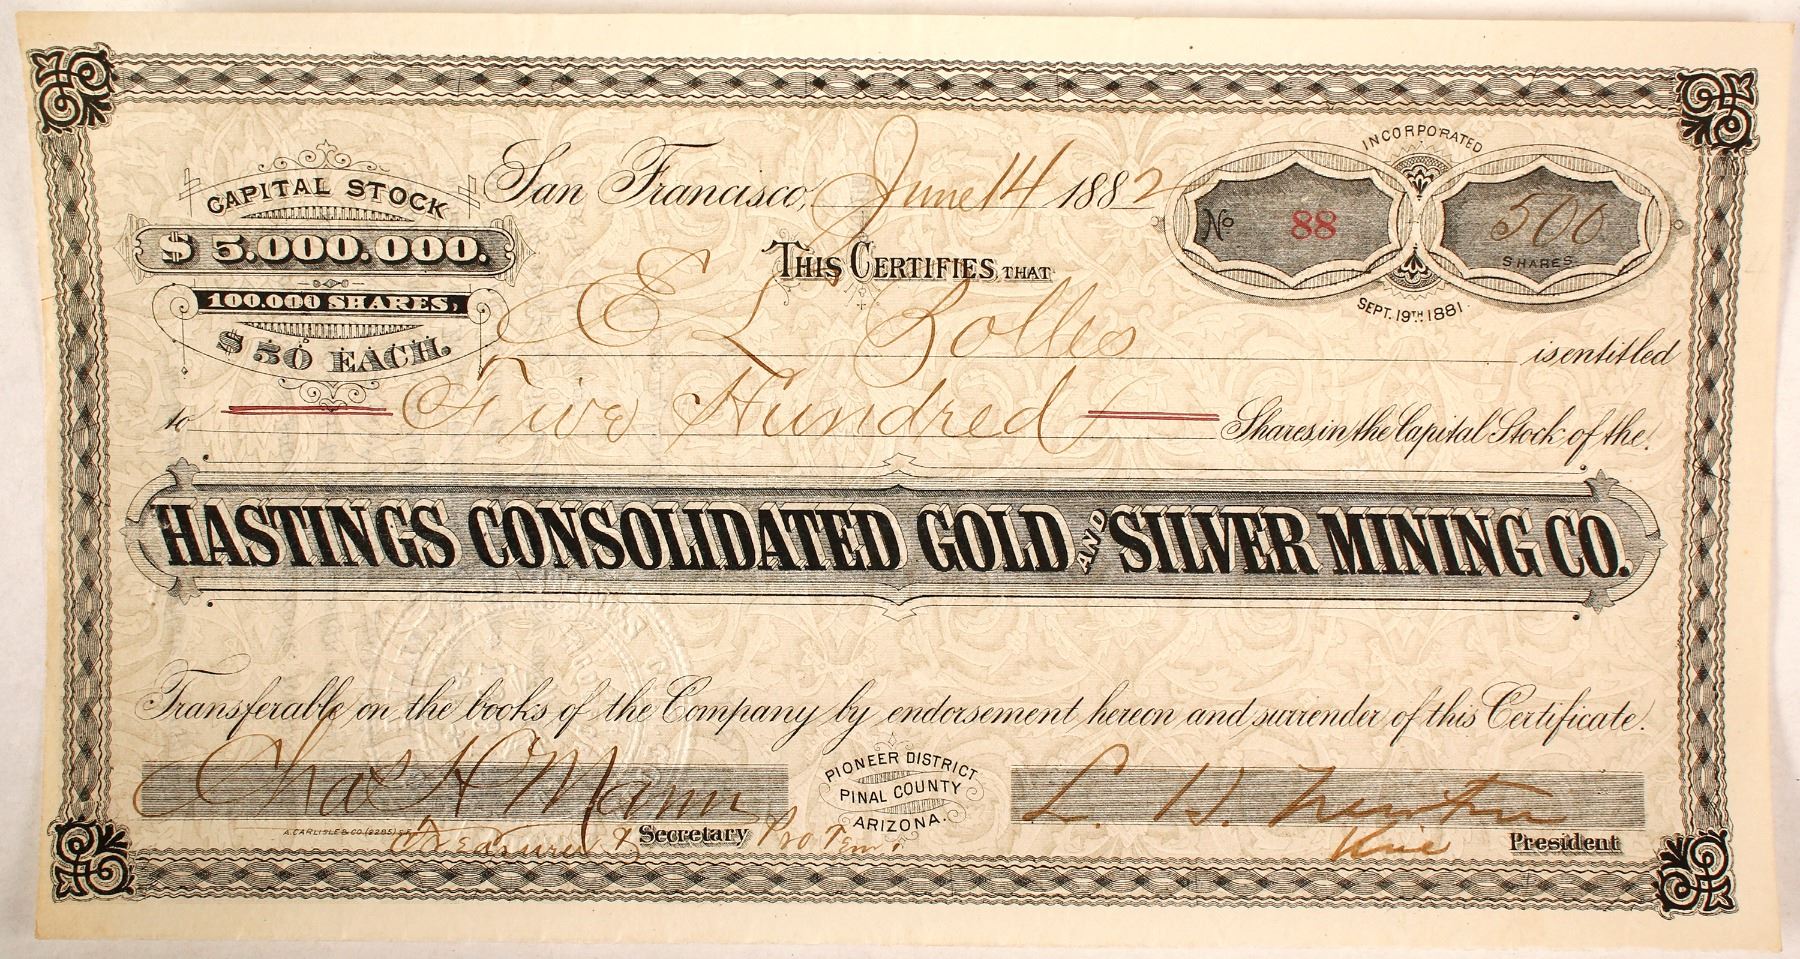 CAPITAL STOCK
$ 5.000.000.
100.000 SHARES,
$ 50 EACH.
San Francisco, June 14 1882
INCORPORATED
No 88
500
SHARES
SEPT. 19TH 1881.
THIS CERTIFIES, THAT
E L Bolles is entitled
to Five Hundred Shares, in the Capital Stock of the
HASTINGS CONSOLIDATED GOLD AND SILVER MINING CO.
Transferable on the books of the Company by endorsement hereon and surrender of this Certificate.
Chas H Mann
PIONEER DISTRICT
PINAL COUNTY
ARIZONA.
L. H. Newton
A. CARLISLE & CO. (2285) S.F.
Treasurer & Secretary Pro Tem.
Vice President